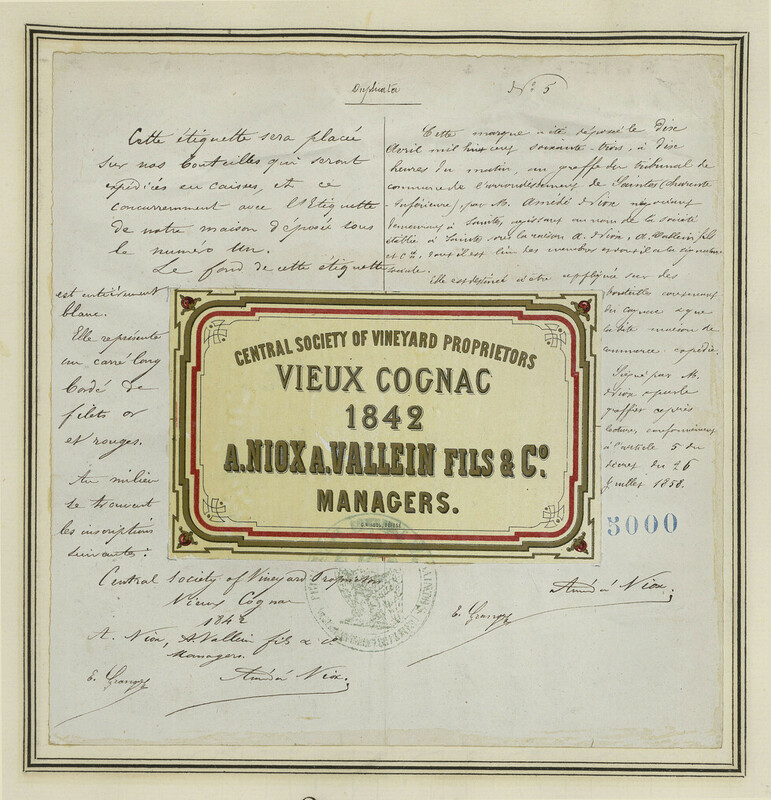 Duplicata
N° 5
Cette étiquette sera placée
sur nos bouteilles qui seront
expédiées en caisses, et ce
concurremment avec l'Etiquette
de notre maison déposée sous
le numéro un.
Le fond de cette étiquette
est entièrement
blanc.
Elle représente
un carré long
bordé de
filets or
et rouges.
Au milieu
se trouvent
les inscriptions
suivantes :
Central Society of Vineyard Proprietors
Vieux Cognac
1842
A. Niox, A. Vallein fils & Co
Managers.
E. Amédée Niox.
Cette marque a été déposée le Dix
Avril mil huit cent soixante-trois, à dix
heures du matin, au greffe du tribunal de
commerce de l'arrondissement de Saintes (charente
Inférieure), par M. Amédée Niox négociant
demeurant à Saintes, agissant au nom de la société
établie à Saintes sous la raison A. Niox, A. Vallein fils
et Cie, dont il est l'un des membres et dont il a la signature
sociale.
Elle est destinée à être appliquée sur des
bouteilles contenant
du cognac que
la dite maison de
commerce expédie.
Signé par M.
Niox et par le
greffier après
lecture conformément
à l'article 5 du
décret du 26
Juillet 1858.
5000
E. Amédée Niox.
CENTRAL SOCIETY OF VINEYARD PROPRIETORS
VIEUX COGNAC
1842
A. NIOX A. VALLEIN FILS & Co.
MANAGERS.